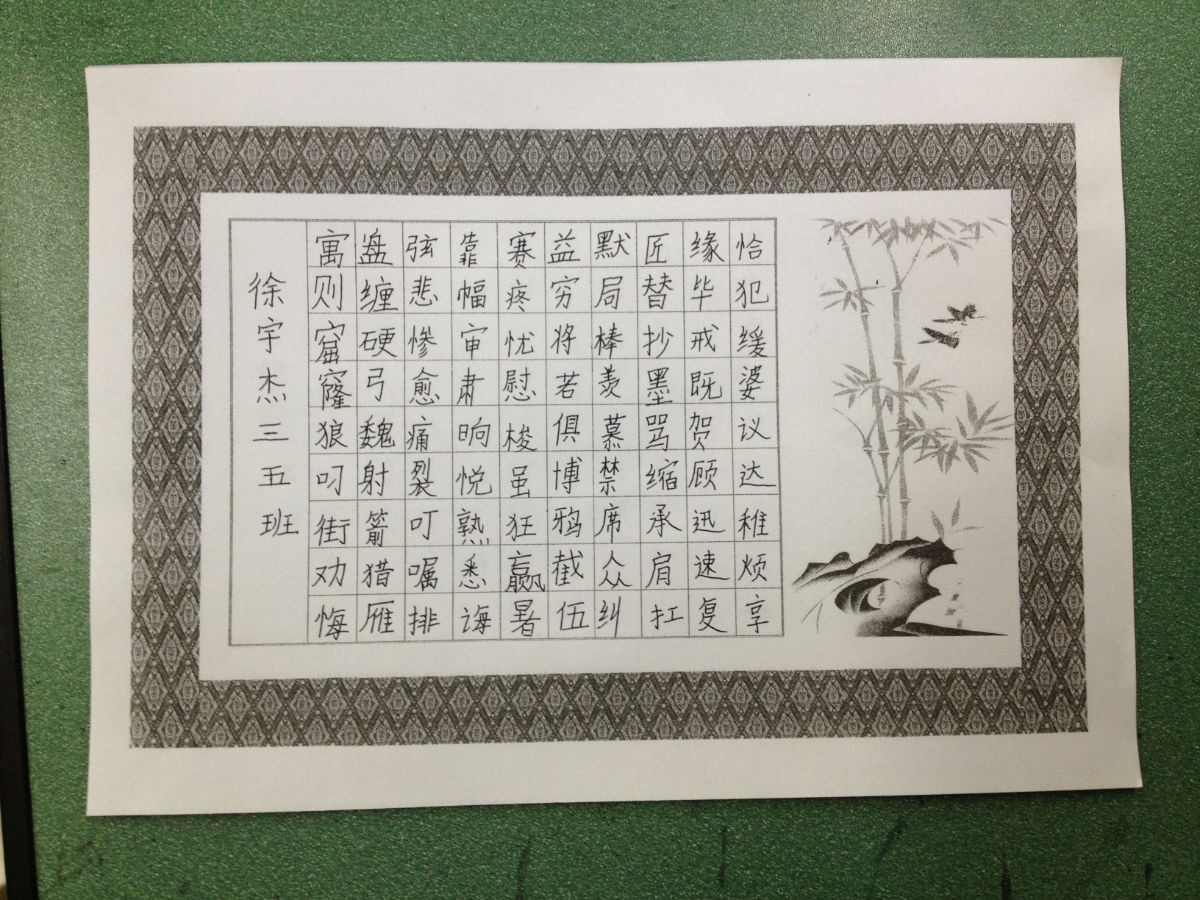 徐宇杰三五班
寓则窟窿狼叼街劝悔
盘缠硬弓魏射箭猎雁
弦悲惨愈痛裂叮嘱排
靠幅审肃晌悦熟悉诲
赛疼忧慰梭虽狂赢暑
益穷将若俱博鸦截伍
默局棒羡慕禁席众纠
匠替抄墨骂缩承肩扛
缘毕戒既贺顾迅速复
恰犯缓婆议达稚烦享